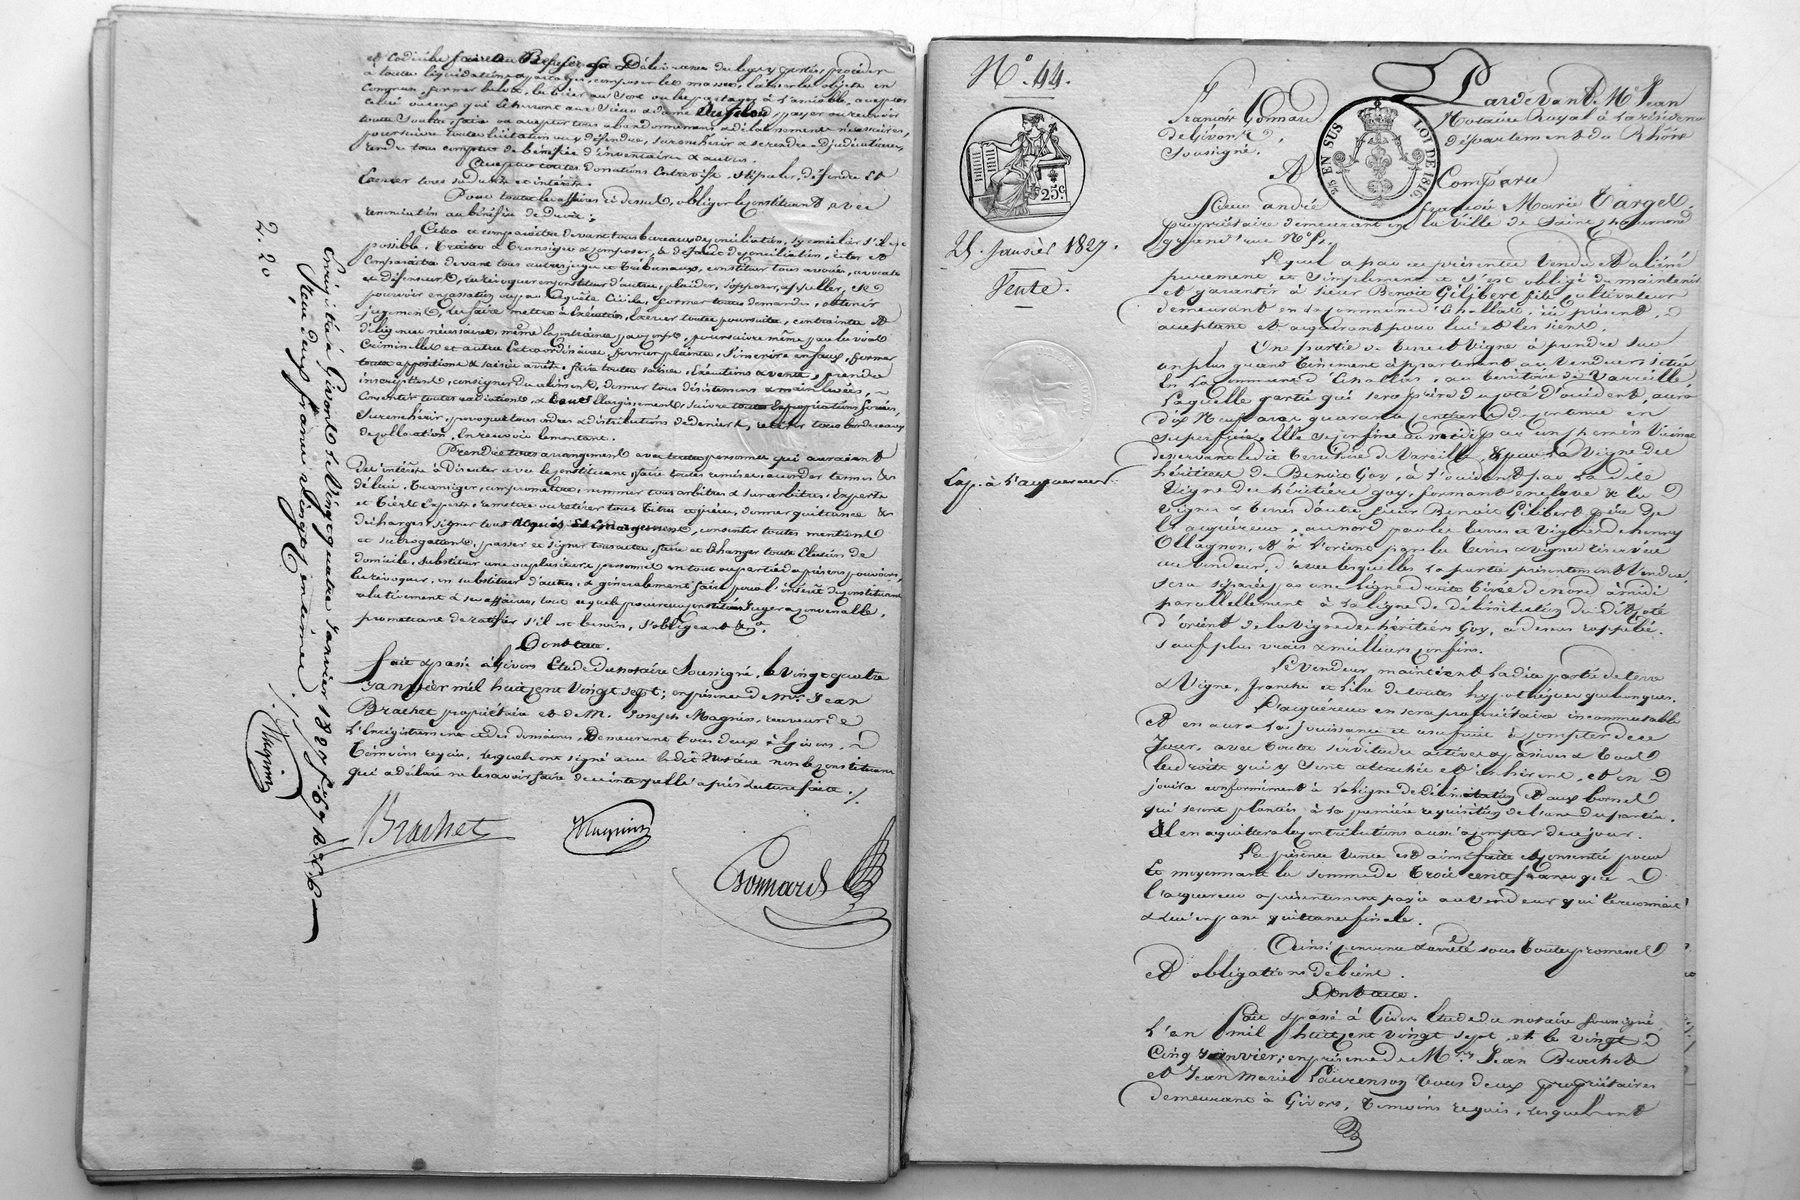 et
toute liquidation, partage, composer les masses,
Accepter toutes donations entrevifs, stipuler, défendre et
Exercer tous retraits et intérêts.
Pour toutes les affaires ci dessus, obliger le constituant avec
renonciation au bénéfice de droit.
Citer et comparaître devant tous bureaux de conciliation, s'y concilier s'il est
possible, traiter & transiger & composer, & à défaut de conciliation, citer et
Comparaître devant tous autres juges et tribunaux, constituer tous avoués, avocats
et défenseurs, les révoquer en constituer d'autres, plaider, s'opposer, appeller, se
pourvoir en cassation ou par requête Civile, former toutes demandes, obtenir
jugement, les faire mettre à Exécution, Exercer toutes poursuites, contraintes et
diligences nécessaires, même la contrainte par corps, poursuivre même par la voie
Criminelle et autre Extraordinaire, former plainte, s'inscrire en faux, former
toutes oppositions & saisies arrêts, faire toutes saisies, Exécutions & vente, prendre
inscriptions, consigner des alimens, donner tous désistemens & main levées,
Consentir toutes radiations, & tous Elargissemens, suivre toutes Expropriations forcées,
Surenchérir, provoquer tous ordres & distributions de deniers, retirer tous bordereaux
de collocation, En recevoir le montant.
Prendre tous arrangemens avec toutes personnes qui auraient
des intérêts à Discuter avec le constituant, faire toutes remises, accorder termes &
délais, transiger, compromettre, nommer tous arbitres & surarbitres, Experts
et tiers Experts, remettre ou retirer tous titres & pièces, donner quittances &
décharges, signer tous acquis et émargement, consentir toutes mentions
et subrogations, passer et signer tous actes, faire et Changer toute Election de
domicile, substituer une ou plusieurs personnes en tout ou partie des présens pouvoirs,
les révoquer, en substituer d'autres, & généralement faire pour l'intérêt du constituant
relativement à ses affaires, tout ce que le procureur constitué Jugera convenable,
promettant de ratifier s'il est besoin, s'obligeant &a.
Dont acte.
Fait & passé à Givors Etude du notaire Soussigné, le vingt quatre
Janvier mil huit cent vingt sept; en présence de Mrs. Jean
Brachet propriétaire et de M. Joseph Magnin, receveur de
l'Enregistrement et des domaines, Demeurant tous deux à Givors,
témoins requis, lesquels ont signé avec le dit Notaire non le constituant
qui a déclaré ne le savoir faire de ce interpellé après lecture faite./.
Brachet
Magnin
Bonnard
Enregistré à Givors le Vingt quatre Janvier 1827
Reçu deux francs Vingt centimes
2. 20
Magnin
No. 44.
25c.
25. Janvier 1827.
Vente.
Exp. à l'acquereur.
25 EN SUS
LOI DE 1816
Pardevant Me Jean
François Bonnard Notaire Royal à la résidence
de Givors, département du Rhône
Soussigné.
A Comparu
Sieur André François Marie Targe
propriétaire demeurant en la ville de Saint Chamond
grand'rue No
Lequel a par ces présentes Vendu et aliéné
purement et simplement et s'est obligé de maintenir
et garantir à sieur Benoit Gilibert fils Cultivateur
demeurant en la commune d'Echallas, ici présent,
acceptant et acquérant pour lui et les siens.
Une partie de terre et Vigne à prendre sur
un plus grand tènement appartenant au Vendeur située
En la commune d'Echallas, au territoire de Vareille,
Laquelle partie qui sera prise du coté d'occident, aura
dix neuf ares quarante centiares de contenue en
superficie. Elle se confine au midi par un chemin Vicinal
desservant le dit territoire de Vareille, & par la Vigne des
héritiers de Benoit Goy, à l'occident par la dite
Vigne des héritiers Goy, formant enclave & les
Vignes & terres d'autre sieur Benoit Gilibert père de
l'acquéreur, au nord par les terres et Vignes de henry
Ollagnon, et à l'orient par les terres & vignes réservées
au Vendeur, d'avec lesquelles la partie présentement Vendue,
sera séparée par une ligne droite tirée de nord à midi
parallellement à la ligne de délimitation du côté
d'orient de la vigne des héritiers Goy, ci dessus rappelée.
sauf plus vrais & meilleurs confins.
Le Vendeur maintient la dite partie de terre
& Vigne, franche et libre de toutes hypothèques quelconques.
L'acquéreur en sera propriétaire incommutable
Et en aura la Jouissance et usufruit à compter de ce
Jour, avec toutes servitudes actives & passives & tous
les droits qui y sont attachés et inhérens, et en
jouira conformément à la ligne de délimitation et aux bornes
qui seront plantées à la première réquisition de l'une des parties.
Il en acquittera les contributions aussi à compter de ce jour.
La présente Vente est ainsi faite & consentie pour
Et moyennant la somme de trois cents francs que
l'acquereur a présentement payée au Vendeur qui le reconnait
& lui en passe quittance finale.
Ainsi convenu & arrêté sous toutes promesses
Et obligations de biens.
Dont acte.
Fait & passé à Givors Etude du notaire soussigné,
L'an mil huit cent vingt sept, et le vingt
Cinq Janvier; en présence de Mrs. Jean Brachet
et Jean Marie Laurenson tous deux propriétaires
demeurant à Givors, témoins requis, lesquels ont